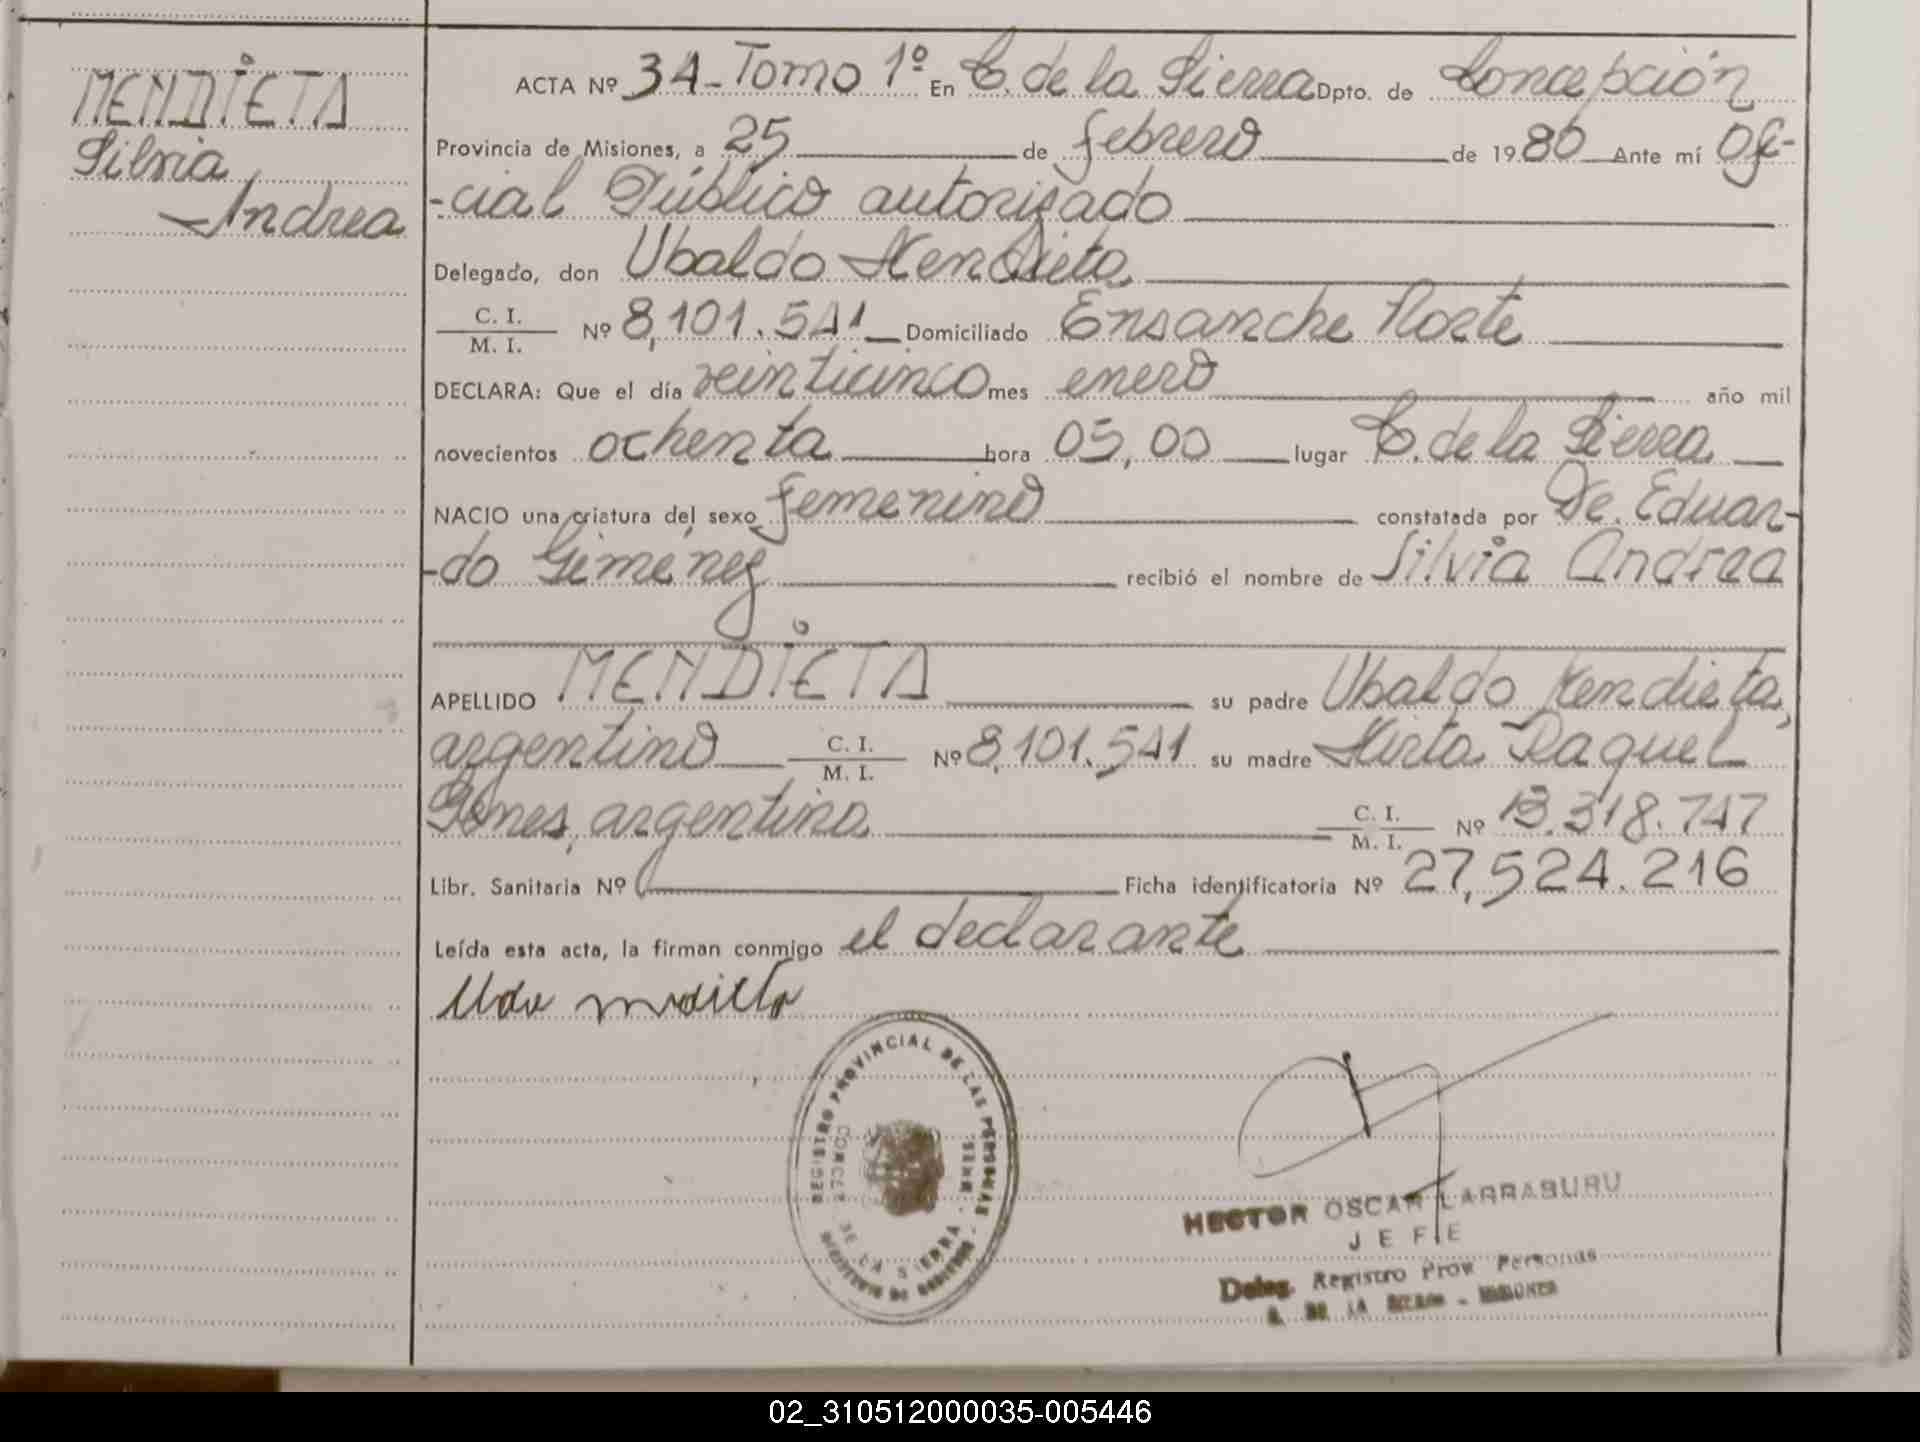 MENDIETA
Silvia
Andrea
ACTA Nº 34 - Tomo 1º En C. de la Sierra Dpto. de Concepción
Provincia de Misiones, a 25 de febrero de 1980 Ante mí Ofi-
-cial Público autorizado
Delegado, don Ubaldo Mendieta
C. I.
M. I. Nº 8,101.541 Domiciliado Ensanche Norte
DECLARA: Que el día veinticinco mes enero año mil
novecientos ochenta hora 05,00 lugar C. de la Sierra
NACIO una criatura del sexo femenino constatada por Dr. Eduar-
-do Giménez recibió el nombre de Silvia Andrea
APELLIDO MENDIETA su padre Ubaldo Mendieta,
argentino C. I. M. I. Nº 8,101.541 su madre Mirta Raquel
argentina C. I. M. I. Nº 13.318.747
Libr. Sanitaria Nº Ficha identificatoria Nº 27,524.216
Leída esta acta, la firman conmigo el declarante
REGISTRO PROVINCIAL DE LAS PERSONAS
DE LA SIERRA
HECTOR OSCAR LARRABURU
JEFE
Deleg. Registro Prov. Personas
DE LA SIERRA - MISIONES
02_310512000035-005446